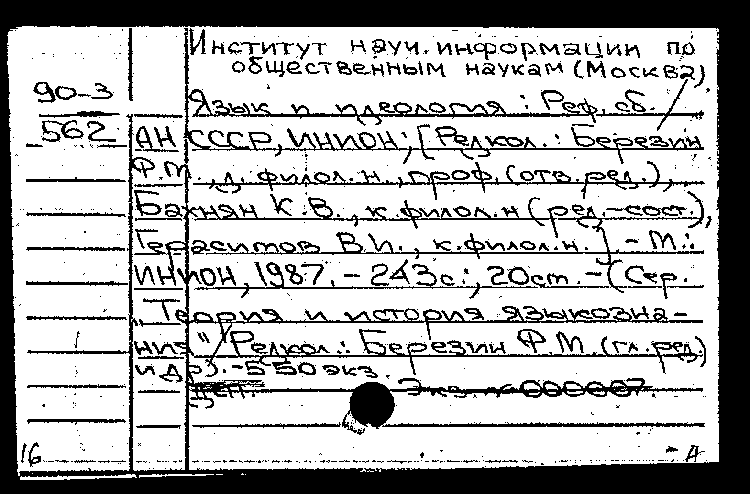 Институт науч. информации по
общественным наукам (Москва)
90-3
Язык и идеология : Реф. сб.
562
АН СССР, ИНИОН; [Редкол.: Березин
Ф.М., д. филол. н., проф. (отв. ред.),
Бахнян К.В., к. филол. н (ред.-сост.),
Герасимов В.И., к. филол. н.]. - М.:
ИНИОН, 1987. - 243 с.; 20 см. - (Сер.
"Теория и история языкозна-
ния" / Редкол.: Березин Ф.М. (гл. ред.)
и др.). - 550 экз.
Экз. № 000007.
16
- А